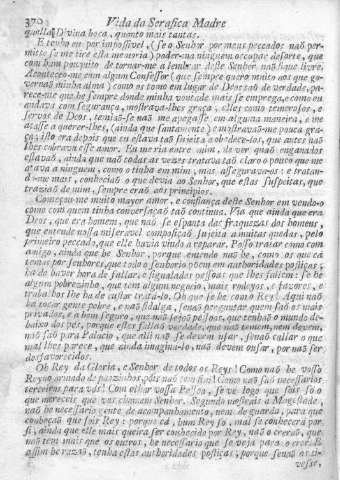 370 Vida da Serafica Madre
quella Divina boca, quanto mais tantas.
E tenho eu por impossivel, (se o Senhor por meus peccados naõ per-
mitte se me tire esta memoria) poder-na ninguem occupar de sorte, que
com hum pouquito de tornar-me a lembrar deste Senhor naõ fique livre.
Aconteceo-me com algum Confessor (que sempre quero muito aos que go-
vernaõ minha alma) como os tomo em lugar de Deos taõ de verdade, pa-
rece-me que he sempre donde minha vontade mais se emprega, e como eu
andava com segurança, mostrava-lhes graça, elles como temerosos, e
servos de Deos, temiaõ-se naõ me apegasse em alguma maneira, e me
atasse a querer-lhes, (ainda que santamente) e mostravaõ-me pouca gra-
ça; isto era depois que eu estava taõ sujeita a obedece-los, que antes naõ
lhes cobrava esse amor. Eu me ria entre mim, de ver quaõ enganados
estavaõ, ainda que naõ todas as vezes tratava taõ claro o pouco que me
atava a ninguem, como o tinha em mim, mas assegurava-os: e tratan-
do-me mais, conheciaõ o que devia ao Senhor, que estas suspeitas, que
traziaõ de mim, sempre eraõ aos principios.
Começou-me muito mayor amor, e confiança deste Senhor em vendo-o
como com quem tinha conversaçaõ taõ continua. Via que ainda que era
Deos, que era homem, que naõ se espanta das fraquezas dos homens,
que entende nossa miseravel composiçaõ sujeita a muitas quedas, pelo
primeiro peccado, que elle havia vindo a reparar. Posso tratar como com
amigo, ainda que he Senhor, porque entendo naõ he, como os que cá
temos por senhores, que todo o senhorio põem em authoridades postiças;
ha de haver hora de fallar, e sinaladas pessoas que lhes fallem: se he
algum pobrezinho, que tem algum negocio, mais rodeyos, e favores, e
trabalhos lhe ha de custar trata-lo. Oh que se he com o Rey! Aqui naõ
ha tocar gente pobre, e naõ fidalga, senaõ perguntar quem saõ os mais
privados, e a bem seguro, que naõ sejaõ pessoas, que tenhaõ o mundo de-
baixo dos pés, porque estes fallaõ verdade, que naõ temem, nem devem,
naõ saõ para Palacio, que alli naõ se devem usar, senaõ callar o que
mal lhes parece, que ainda imagina-lo naõ devem ousar, por naõ ser
desfavorecidos.
Oh Rey da Gloria, e Senhor de todos os Reys! Como naõ he vosso
Reyno armado de pausinhos, pois naõ tem fim! Como naõ saõ necessarios
terceiros para vós! Com olhar vossa Pessoa, se ve logo que sois só o
que mereceis que vos chamem Senhor. Segundo mostrais a Magestade,
naõ he necessario gente de acompanhamento, nem de guarda, para que
conheçaõ que sois Rey: porque cá, hum Rey só, mal se conhecerá por
si, ainda que elle mais queira ser conhecido por Rey, naõ o creraõ, que
naõ tem mais que os outros, he necessario que se veja para o crer. E
assim he razaõ, tenha estas authoridades postiças, porque senaõ as ti-
vesse,